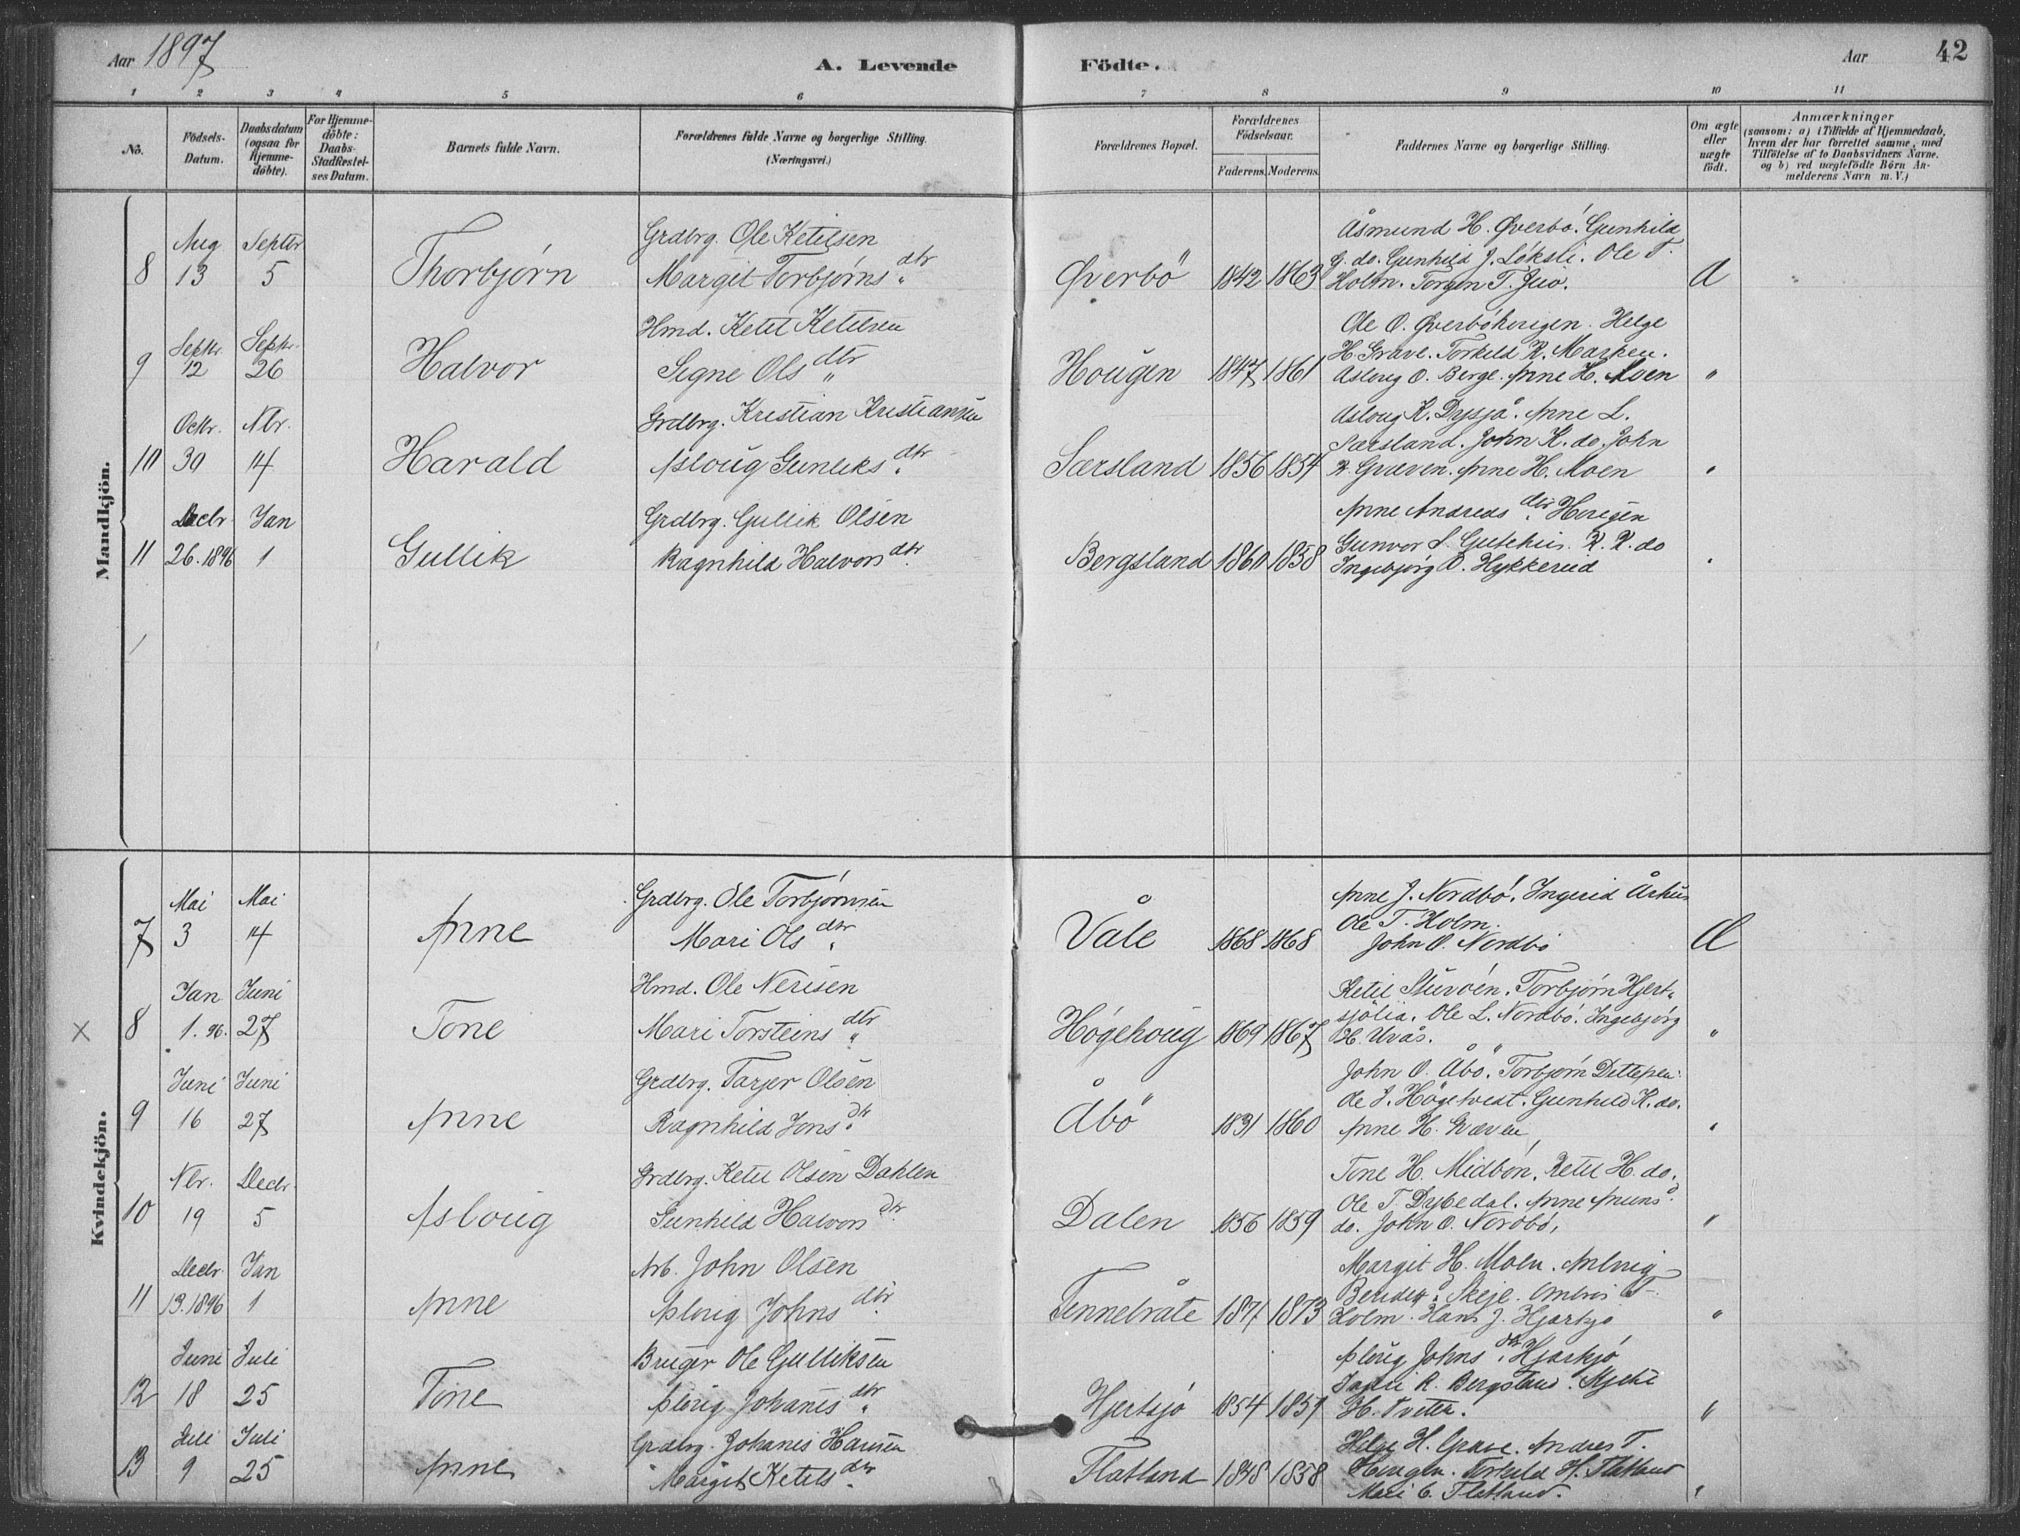 Aar 1897
A. Levende
Födte.
Aar
42
1 2 3 4 5 6 7 8 9 10 11
No.
Födsels-Datum.
Daabsdatum (ogsaa for Hjemme-döbte).
For Hjemme-döbte: Daabs-Stadfestel-ses Datum.
Barnets fulde Navn.
Forældrenes fulde Navne og borgerlige Stilling. (Næringsvei.)
Forældrenes Bopæl.
Forældrenes Födselsaar.
Faderens. Moderens.
Faddernes Navne og borgerlige Stilling.
Om ægte eller uægte födt.
Anmærkninger
(saasom: a) i Tilfælde af Hjemmedaab,
hvem der har forrettet samme, med
Tilföielse af to Daabsvidners Navne.
og b) ved uægtefödte Börn An-
melderens Navn m. V.)
Mandkjön.
8 Aug 13 Septbr 5 Thorbjørn
Grdbrg. Ole Ketilsen
Margit Torbjørnsdtr
Øverbö 1842 1863
Åsmund H. Øverbö. Gunhild
G. do. Gunhild J. Løksli. Ole T.
Holm. Torgen T.
9 Septr. 12 Septr. 26 Halvor
Hmd. Ketil Ketilsen
Signe Olsdtr
Hougen 1847 1861
Ole O. Øverböhougen. Helge
H. Grave. Torkild K. Marken.
Asloug O. Berge. Anne H. Moen "
10 Octr. 30 Nbr. 14 Harald
Grdbrg. Kristian Kristiansen
Asloug Gunleksdtr
Særsland 1856 1854
Asloug K. Dysjå. Anne L.
Særsland. John K. do. John
Græven. Anne H. Moen "
11 Decbr 26. 1896 Jan 1 Gullik
Grdbrg. Gullik Olsen
Ragnhild Halvorsdtr.
Bergsland 1860 1858
Anne Andreasdtr Hougen
Gunvor S. K. K. do
Ingebjørg O. Hykkerud
Kvindekjön.
7 Mai 3 Mai 14 Anne
Grdbrg. Ole Torbjørnsen
Mari Olsdtr
Våle 1868 1868
Anne J. Nordbö. Ingerid Århus
Ole T. Holm.
John O. Nordbö
8 Jan 1. 96. Juni 27 Tone
Hmd. Ole Nerisen
Mari Torsteinsdtr
Høgehoug 1869 1867
Ketil Sturöen. Torbjørn Hjert-
sjölia. Ole L. Nordbö. Ingebjørg
H. Urås. "
9 Juni 16 Juni 27 Anne
Grdbrg. Tarjer Olsen
Ragnhild Jonsdtr
Åbö 1831 1860
John O. Åbö. Torbjørn
Ole J. Högetveit. Gunhild K. do.
Anne H. Græven "
10 Nbr. 19 Decbr. 5 Asloug
Grdbrg. Ketil Olsen Dahlen
Gunhild Halvorsdtr
Dalen 1856 1859
Tone H. Midbøn. Ketil H. do.
Ole T. Dybedal. Anne
do. John O. Nordbö. "
11 Decbr 13. 1896 Jan 1 Anne
Arb. John Olsen
Asloug Johnsdtr.
Tennebråte 1871 1873
Margit H. Moen. Anlaug
Skeje. T.
Holm. Hans J. Hjartsjø "
12 Juni 18 Juli 25 Tone
Bruger Ole Gulliksen
Aslaug Johannesdtr
Hjertsjö 1854 1857
Aslaug Johnsdtr Hjartsjö
R. Bergsland.
H. Tveter. "
13 Juli 9 Juli 25 Anne
Grdbrg. Johanes Hansen
Margit Ketelsdtr
Flatland 1848 1858
Helge H. Grave. Andres T.
Hougen. Torkild H. Flatland
Mari C. Flatland. "